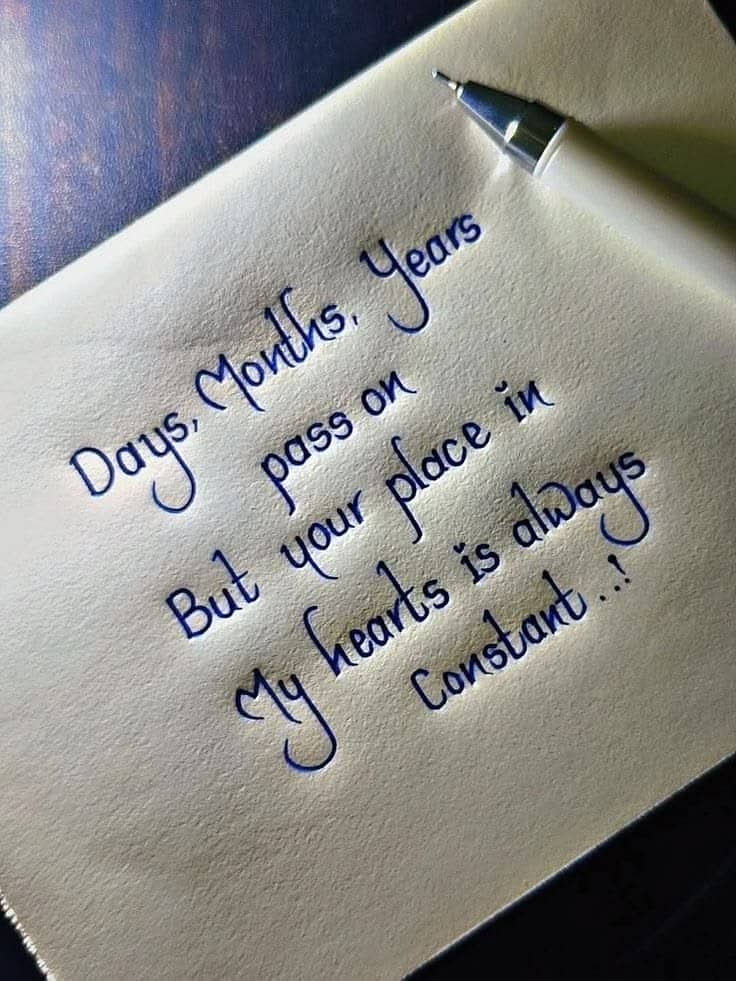 Days, Months, Years
pass on
But your place in
My hearts is always
Constant..!